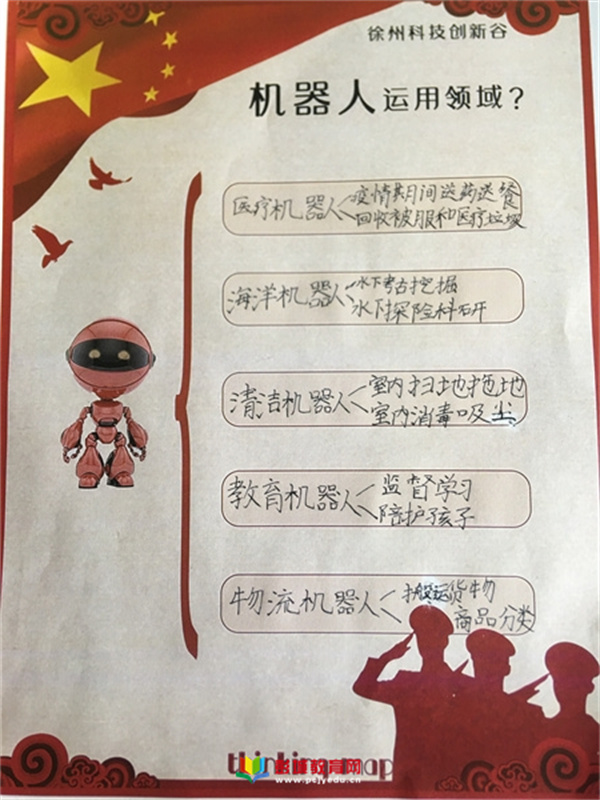 徐州科技创新谷
机器人运用领域?
医疗机器人
疫情期间送药送餐
回收被服和医疗垃圾
海洋机器人
水下考古挖掘
水下探险科研
清洁机器人
室内扫地拖地
室内消毒吸尘
教育机器人
监督学习
陪护孩子
物流机器人
搬运货物
商品分类
教育网
www.psjyedu.cn